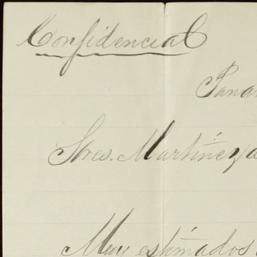 Confidencial
Pana
Sres. Martínez a
Muy estimados